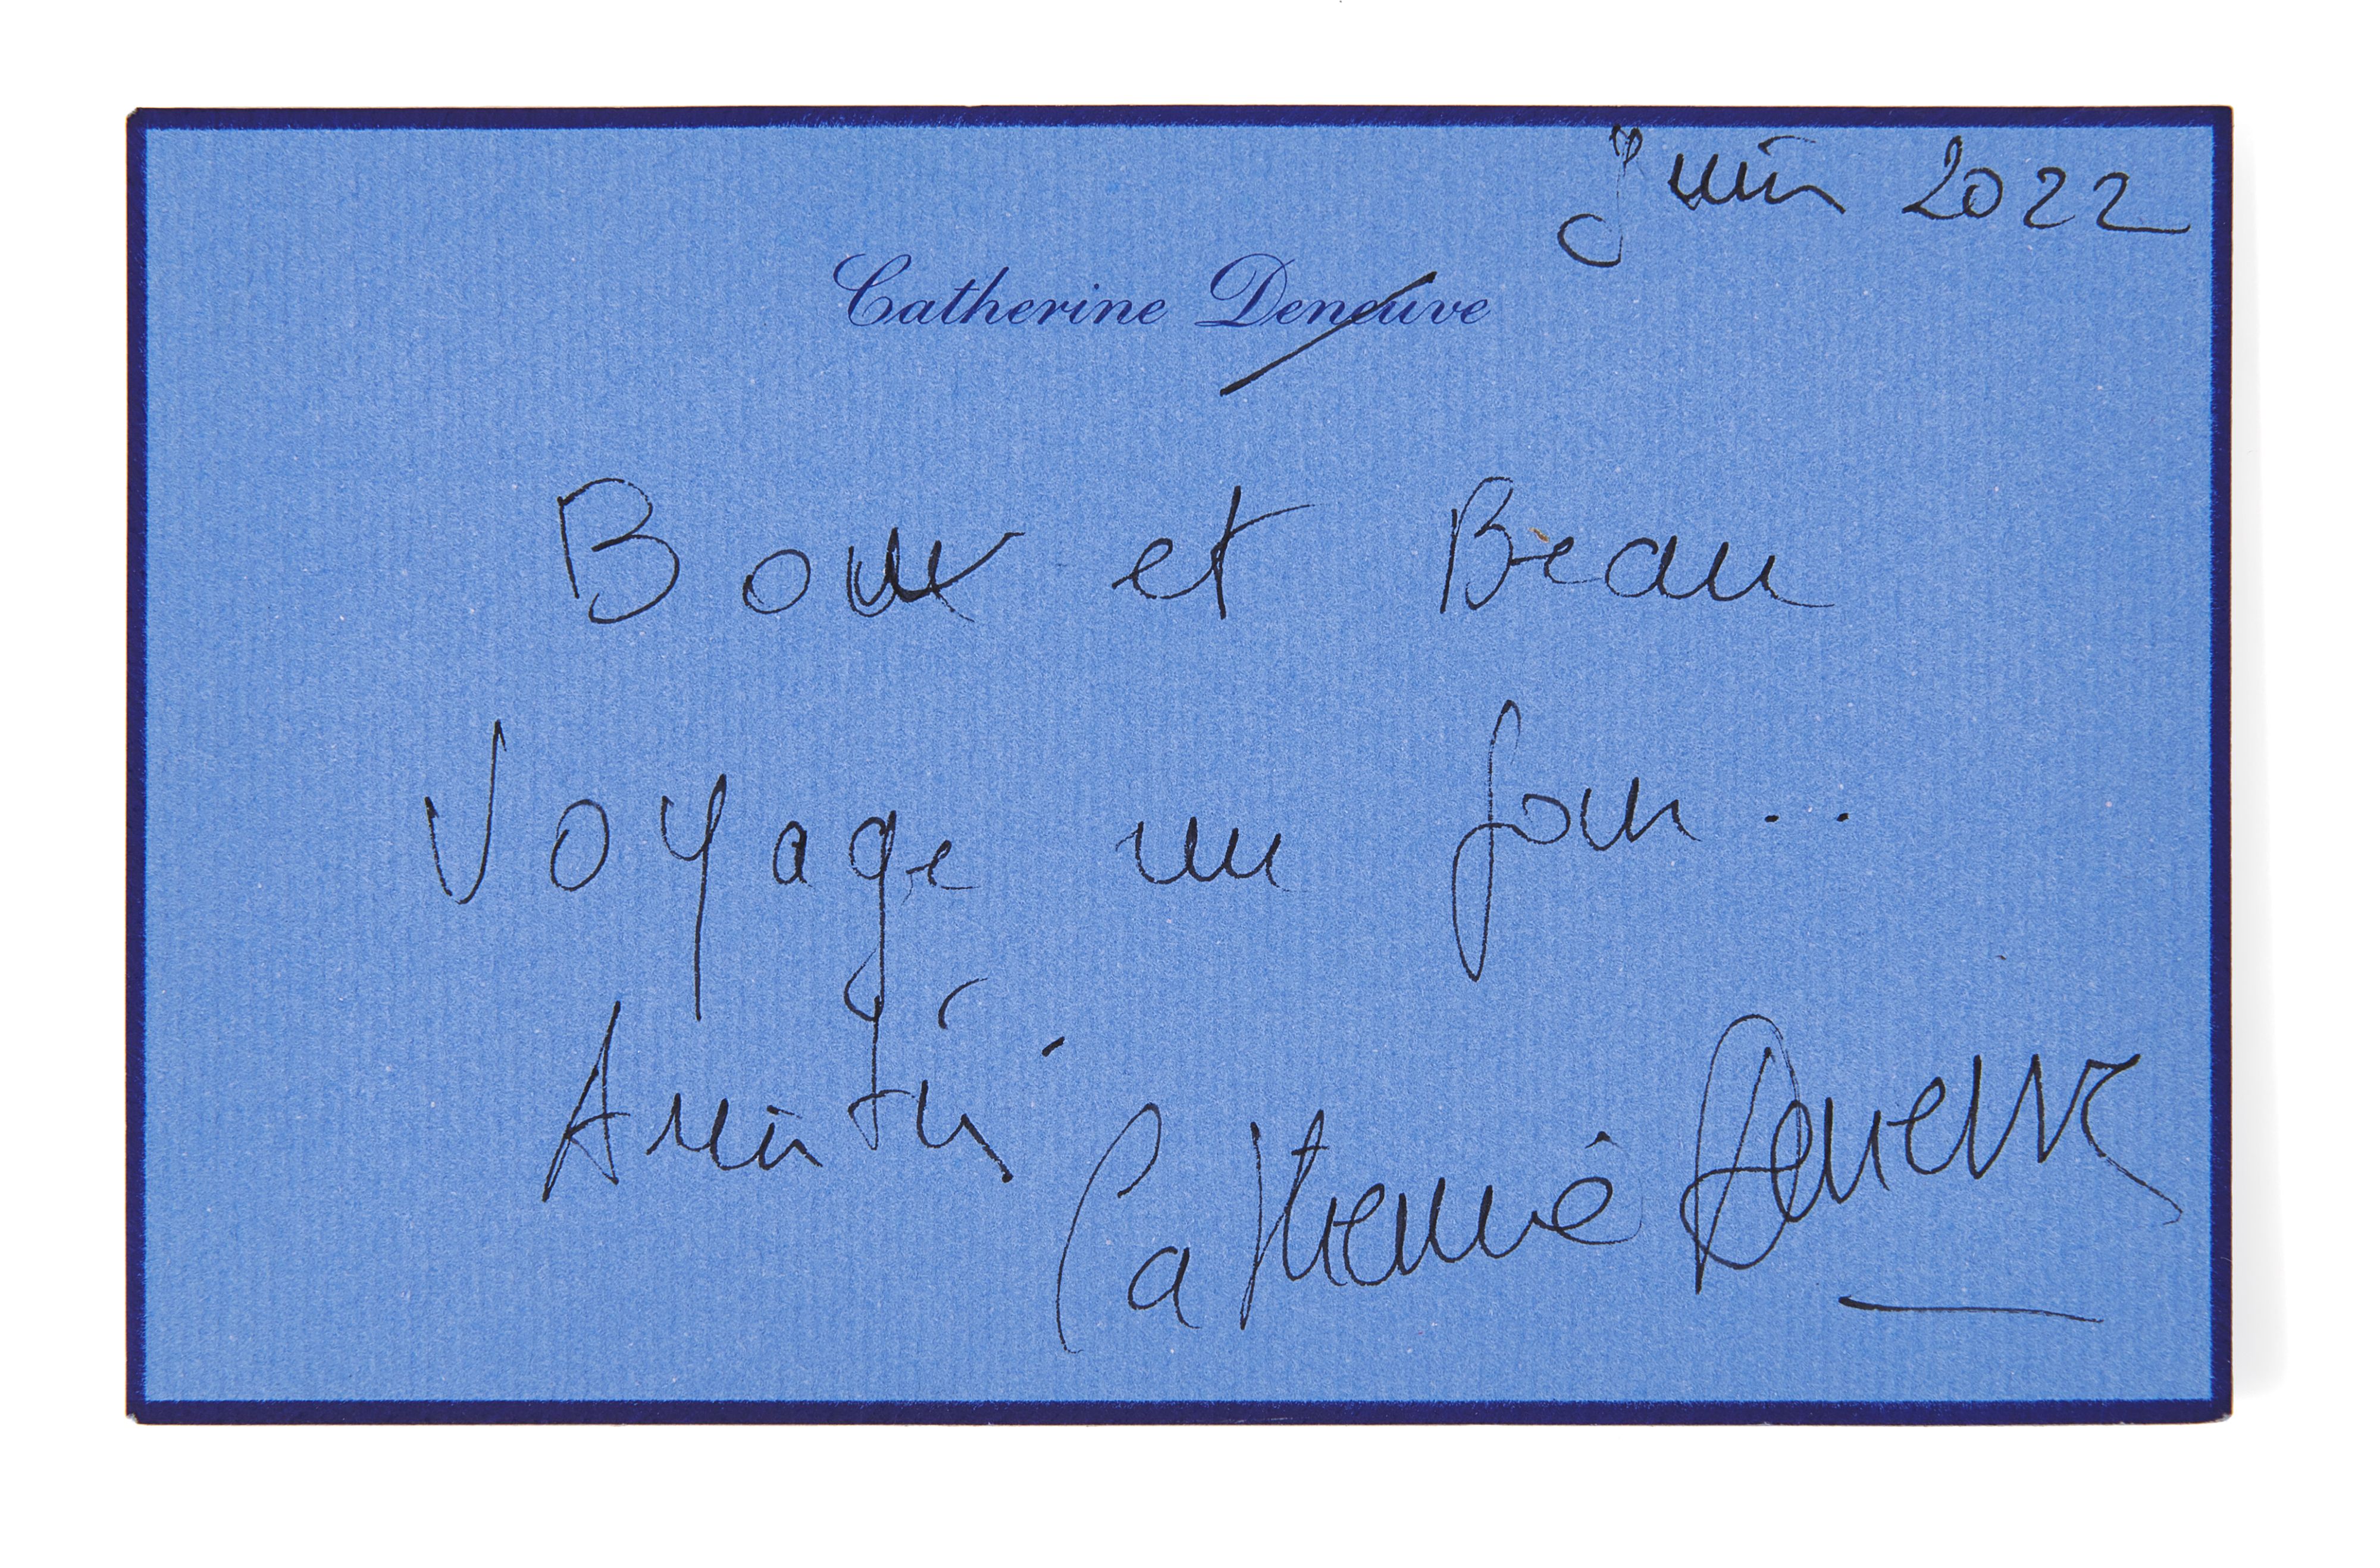 Juin 2022
Catherine Deneuve
Bon et Beau
Voyage un jour...
Amitiés.
Catherine Deneuve